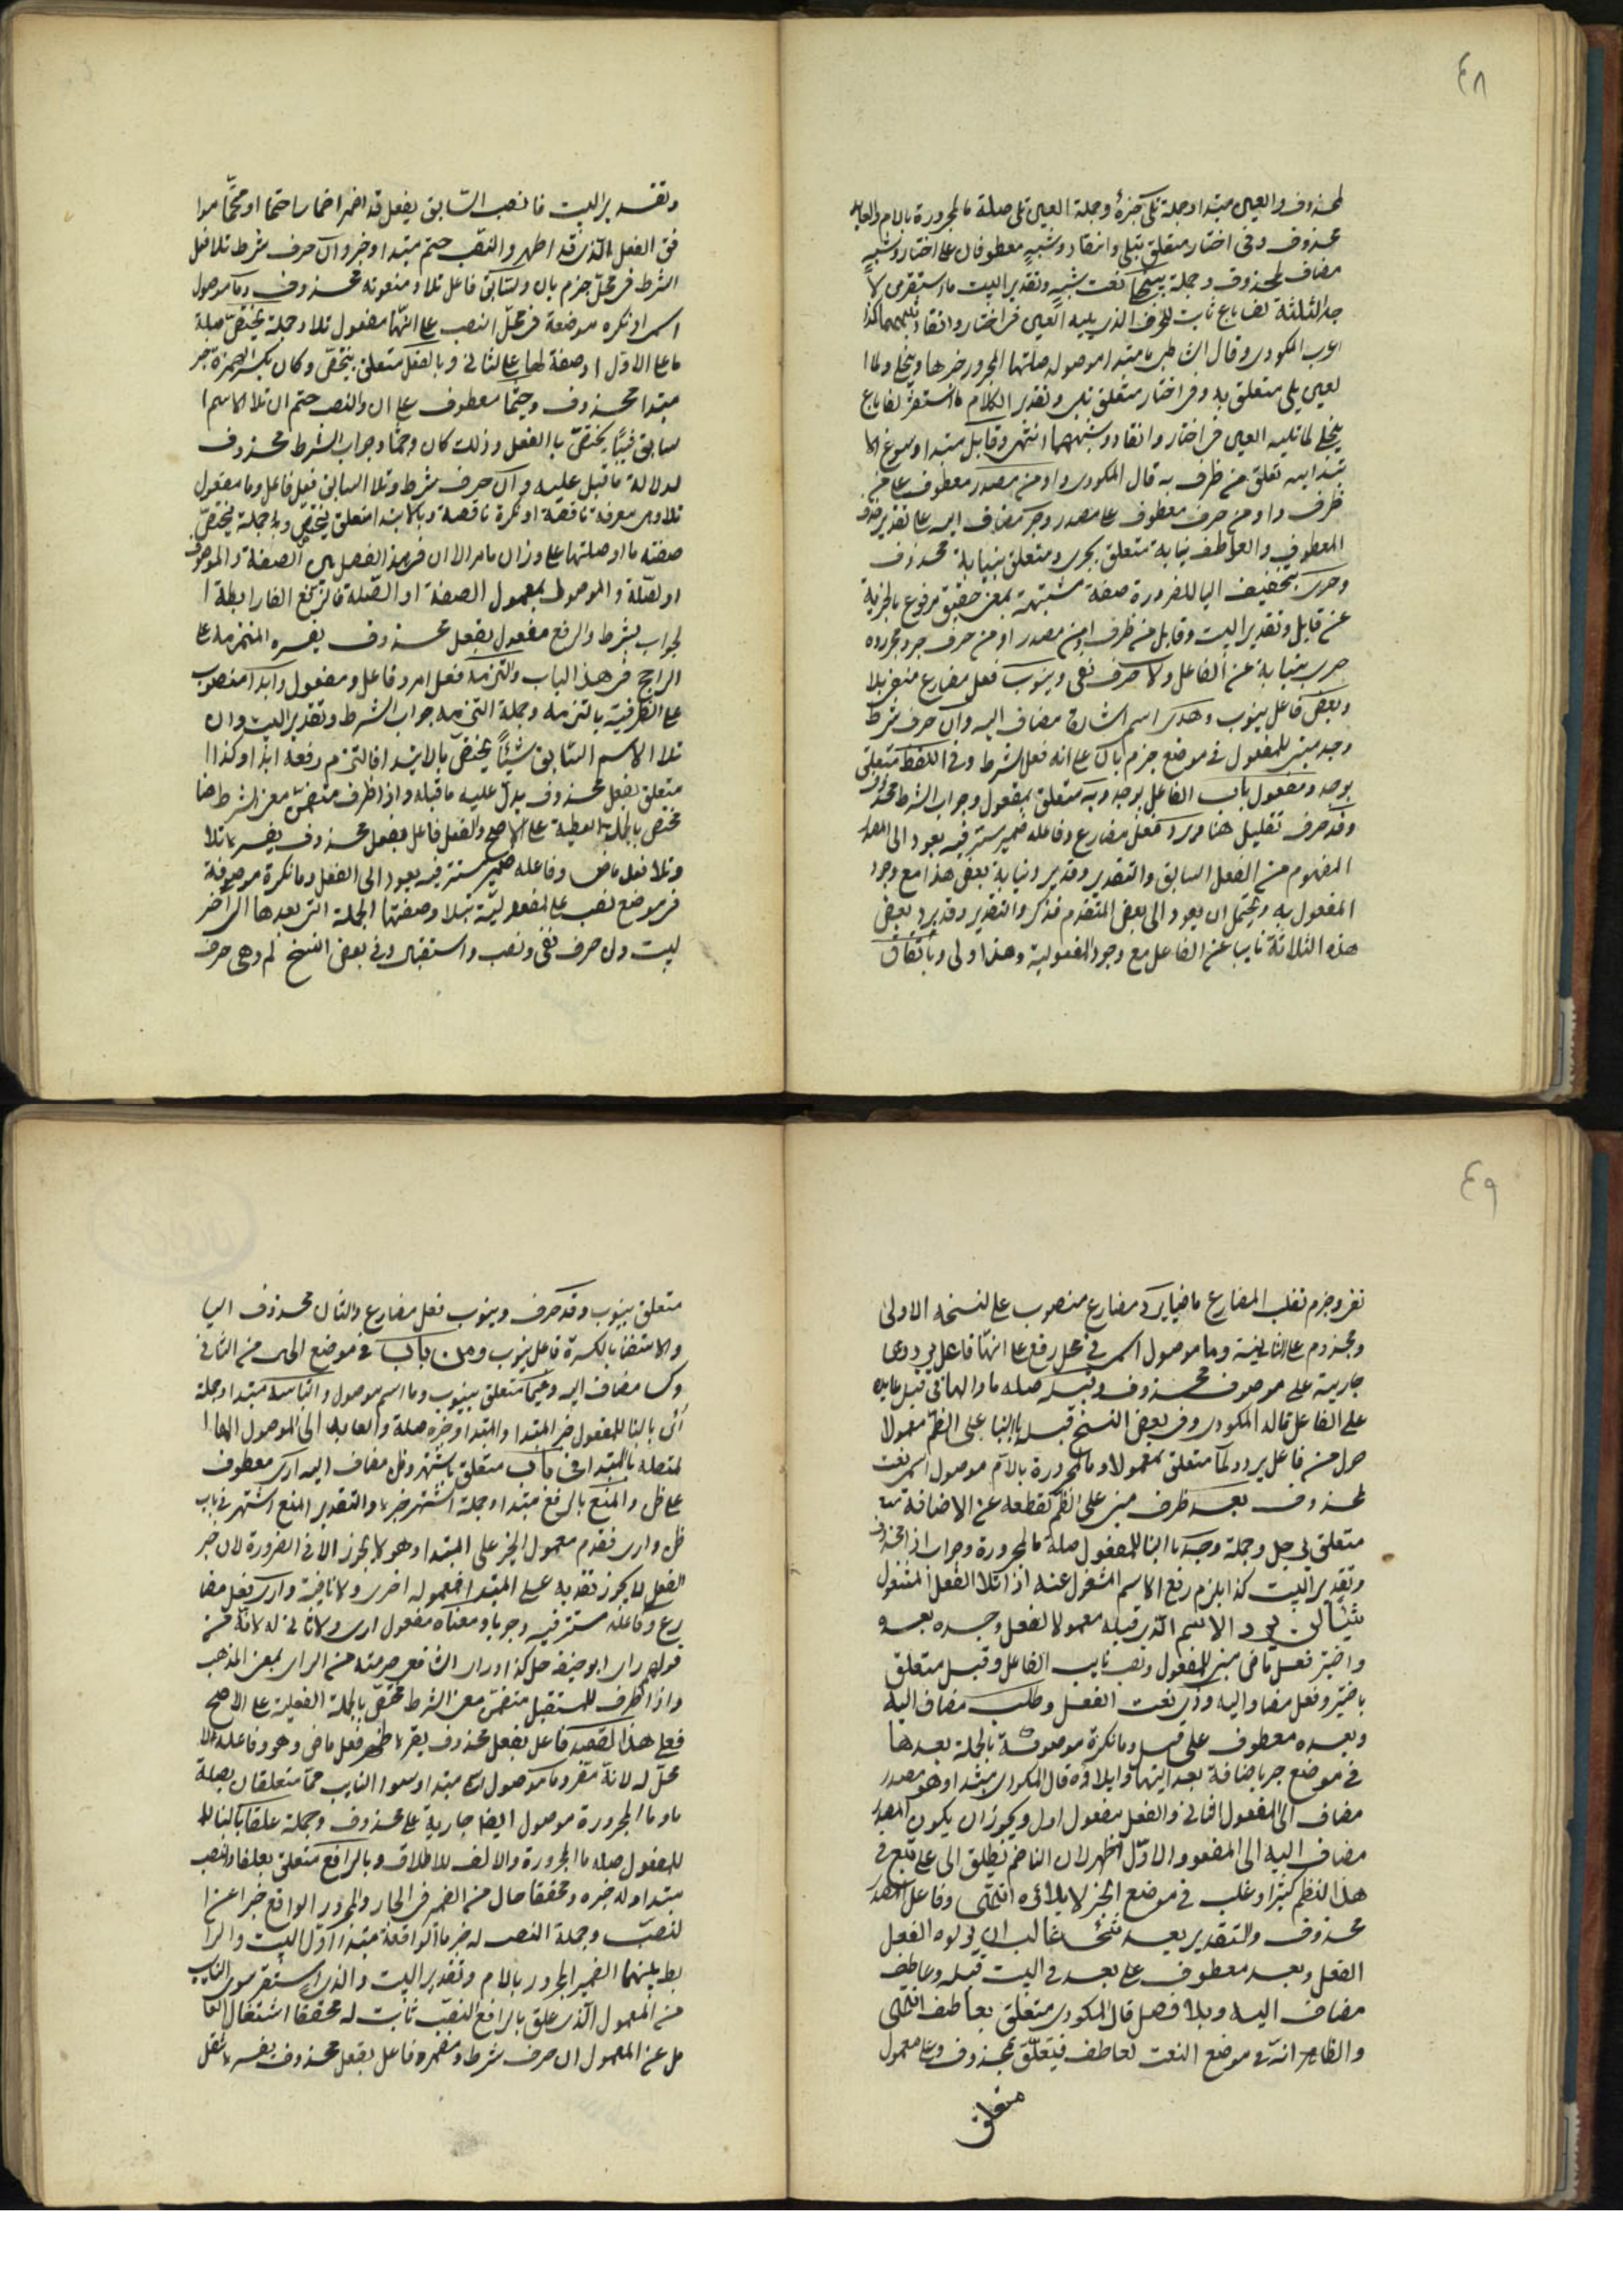 ٤٨
لمحذوف والعين مبتدا وجملة تلى خبره وجملة العين تلى صلة ما المجرورة باللام والعايد
محذوف وفى اختار متعلق بتلى وانقاد وشبيه معطوفان على اختار وشبيه
مضاف لمحذوف وجملة ينجلى نعت شبيه وتقدير البيت ما استقر من لا
جد الثلثة لفا باع ثابت للحرف الذى يليه العين فى اختار وانقاد وشبههما كذا
اعرب المكودى وقال الشاطبى ما مبتدا موصوله صلتها المجرور خبرها وينجلى ولما ا
لعين يلى متعلق به وفى اختار متعلق بتلى وتقدير الكلام ما استقر لفا باع
ينجلى لما تليه العين فى اختار وانقاد وشبههما انتهى وقابل مبتدا وسوغ الا
بتدا به تعلق من ظرف به قال المكودى واو من مصدر معطوف على من
ظرف واو من حرف معطوف على مصدر وجر مضاف اليه على تقدير حذف
المعطوف والعاطف نيابة متعلق بحرى ومتعلق بنيابة محذوف
وحرى بتخفيف اليا للضرورة صفة مشبهة بمعنى حقيق مرفوع بالخبرية
عن قابل وتقدير البيت وقابل من ظرف او من مصدر او من حرف جر ومجروره
حرى بنيابة عن الفاعل ولا حرف نفى وينوب فعل مضارع منفى بلا
وبعض فاعل ينوب وهذى اسم اشارة مضاف اليه وان حرف شرط
وجد مبنى للمفعول فى موضع جزم بان على انه فعل الشرط وفى اللفظ متعلق
بوجد ومفعول نايب الفاعل بوجد وبه متعلق بمفعول وجواب الشرط محذوف
وقد حرف تقليل هنا ويرد فعل مضارع وفاعله ضمير مستتر فيه يعود الى المصدر
المفهوم من الفعل السابق والتقدير وقد يرد نيابة بعض هذا مع وجود
المفعول به ويحتمل ان يعود الى بعض المتقدم فذكر والتقدير وقد يرد بعض
هذه الثلاثة نايبا عن الفاعل مع وجود المفعولية وهذا اولى وباتفاق
وتقدير البيت فانصب السابق بفعل قد اضمر اضمارا حتما او محتما موا
فق الفعل الذى قد اظهر والنصب حتم مبتدا وخبر وان حرف شرط تلا فعل
الشرط فى محل جزم بان والسابق فاعل تلا ومنعوته محذوف وما موصول
اسمى او نكره موضعة فى محل النصب على انها مفعول تلا وجملة يختص صلة
ما على الاول او صفة لها على الثانى وبالفعل متعلق بيختص وكان بكسر الهمزة خبر
مبتدا محذوف وحيثما معطوف على ان والنصب حتم ان تلا الاسم ا
لسابق شيئا يختص بالفعل وذلك كان وحيثما وجواب الشرط محذوف
لدلالة ما قبل عليه وان حرف شرط وتلا السابق فعل فاعل وما مفعول
تلا وهى معرفة ناقصة او نكرة ناقصة وبالابتدا متعلق بيختص وجملة يختص
صفة ما او صلتها على وزان ما مر الا ان فى هذا الفصل بين الصفة والموصوف
او الصلة والموصول بمعمول الصفة او الصلة فالرفع الفا رابطة ا
لجواب بشرط والرفع مفعول بفعل محذوف يفسره التزمه على
الراجح فى هذا الباب والتزمه فعل امر وفاعل ومفعول وابدا منصوب
على الظرفية بالتزمه وجملة التزمه جواب الشرط وتقدير البيت وان
تلا الاسم السابق شيئا يختص بالابتدا فالتزم رفعه ابدا وكذا ا
متعلق بفعل محذوف يدل عليه ما قبله واذا ظرف متضمن معنى الشرط هنا
مختص بالجملة الفعلية على الاصح والفعل فاعل بفعل محذوف يفسره تلا
وتلا فعل ماض وفاعله ضمير مستتر فيه يعود الى الفعل وما نكرة موصوفة
فى موضع نصب على المفعولية بتلا وصفتها الجملة التى بعدها الى آخر
ليت ولن حرف نفى ونصب واستقبال وفى بعض النسخ لم وهى حرف
٤٩
نفى وجزم تقلب المضارع ماضيا يرد مضارع منصوب على النسخة الاولى
ومجزوم على الثانية وما موصول اسمى فى محل رفع على انها فاعل يرد وهى
جارية على موصوف محذوف وقبله صله ما والها فى قبل عايده
على الفاعل قاله المكودى وفى بعض النسخ قبل بالبنا على الضم معمولا
حال من فاعل يرد ولما متعلق بمعمولا وما المجرورة باللام موصول اسمى نعت
لمحذوف بعد ظرف مبنى على الضم لقطعه عن الاضافة
متعلق وجملة وجد بالبنا للمفعول صلة ما المجرورة وجواب اذا محذوف
وتقدير البيت كذا يلزم رفع الاسم المشغول عنه اذا تلا الفعل المشغول
شيئا لن يرد الاسم الذى قبله معمولا لفعل وجد بعده
واختير فعل ماض مبنى للمفعول ونصب نايب الفاعل وقبل متعلق
باختير وفعل مضاف اليه وذى نعت الفعل وطلب مضاف اليه
وبعد معطوف على قبل وما نكرة موصوفة بالجملة بعدها
فى موضع جر باضافة بعد اليها وايلاؤه قال المكودى مبتدا وهو مصدر
مضاف الى المفعول الثانى والفعل مفعول اول ويجوز ان يكون المصدر
مضاف اليه الى المفعول الاول اظهر لان الناظم يطلق الى على تبع فى
هذا النظم كثيرا وغلب فى موضع الخبر لايلاؤه انتهى وفاعل المصدر
محذوف والتقدير بعد شئ غالب ان يولوه الفعل
الفعل وبعد معطوف على بعد فى البيت قبله وعاطف
مضاف اليه وبلا فصل قال المكودى متعلق بعاطف انتهى
والظاهر انه فى موضع النعت لعاطف فيتعلق بمحذوف وعلى معمول
متعلق
متعلق بينوب وقد حرف وينوب فعل مضارع والثان محذوف اليا
والاستغنا بالكسرة فاعل ينوب ومن باب فى موضع الحال من الثانى
وكسا مضاف اليه وفيما متعلق بينوب وما اسم موصول والتباسه مبتدا وجملة
امن بالبنا للمفعول خبر المبتدا والمبتدا وخبره صلة والعايد الى الموصول الها ا
لمتصلة بالمبتدا فى باب متعلق باشتهر وظن مضاف اليه ارى معطوف
على ظن والمنع بالرفع مبتدا وجملة اشتهر خبره والتقدير المنع اشتهر فى باب
ظن وارى فقدم معمول الخبر على المبتدا وهو لا يجوز الا فى الضرورة لان خبر
الفعل لا يجوز تقديمه على المبتدا فمعموله احرى ولا نافية وارى فعل مضا
رع وفاعله مستتر فيه وجوبا ومفعناه مفعول ارى ولا ثانى له لانه من
قولهم راى ابو حنيفة حل كذا وراى الشافعى حرمته من الراى بمعنى المذهب
واذا ظرف للمستقبل متضمن معنى الشرط مختص بالجملة الفعلية على الاصح
فعلى هذا القصد فاعل بفعل محذوف يفسره ظهر فعل ماض وهو وفاعله لا
محل له لانه مفسر وما موصول اسمى مبتدا وسوا النايب مما متعلقان بصلة
ما وما المجرورة موصول ايضا جارية على محذوف وجملة علقا بالبنا لل
للمفعول صله ما المجرورة والالف للاطلاق وبالرافع متعلق بعلقا والنصب
مبتدا وله خبره ومحققا حال من الضمير فى الجار والمجرور الواقع خبرا عن ا
لنصب وجملة النصب له خبر ما الواقعة مبتدا اول البيت والرا
بط بينهما الضمير المجرور باللام وتقدير البيت والذى استقر سوى النايب
من المعمول الذى علق بالرافع النصب ثابت له محققا اشتغال العا
مل عن المعمول ان حرف شرط ومضمر فاعل بفعل محذوف يفسره شغل